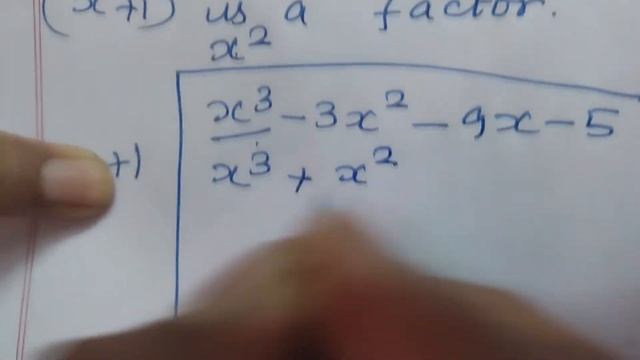 (x+1) is a factor.
x²
x³ - 3x² - 9x - 5
+1)
x³ + x²